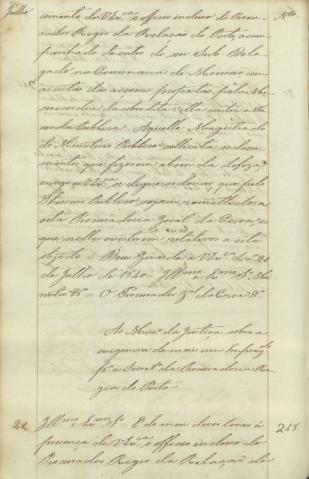 Julho
cimento de V. Ex.ca o officio incluso do Procu-
rador Regio da Relação do Porto, acom-
panhado de outro do seu Sub Dele-
gado na Commarca de Monção com
as da sobredita Villa contra a Fa-
zenda Publica. Aquelle Magistrado
do Ministerio Publico sollicita os docu-
mentos que fizerem a bem da defeza,
e rogo a V. Ex.ca se digne ordenar que pelo
Thesouro Publico sejam remettidos a
esta Procuradoria Geral da Coroa os
que nelle existirem relativos a este
objecto = Deos Guarde a V. Ex.ca 21
de Julho de 1840 = Ill.mo e Ex.mo Sr.
= O Procurador G.al da Coroa
Ao Min.o da Justiça sobre a
exigencia de mais um Empreg.do
p.a a Secret.a da Procuradoria Re-
gia do Porto
21 Ill.mo e Ex.mo Sr. = É do meu dever levar á
presença de V. Ex.ca o officio incluso do
Procurador Regio da Relação do
218